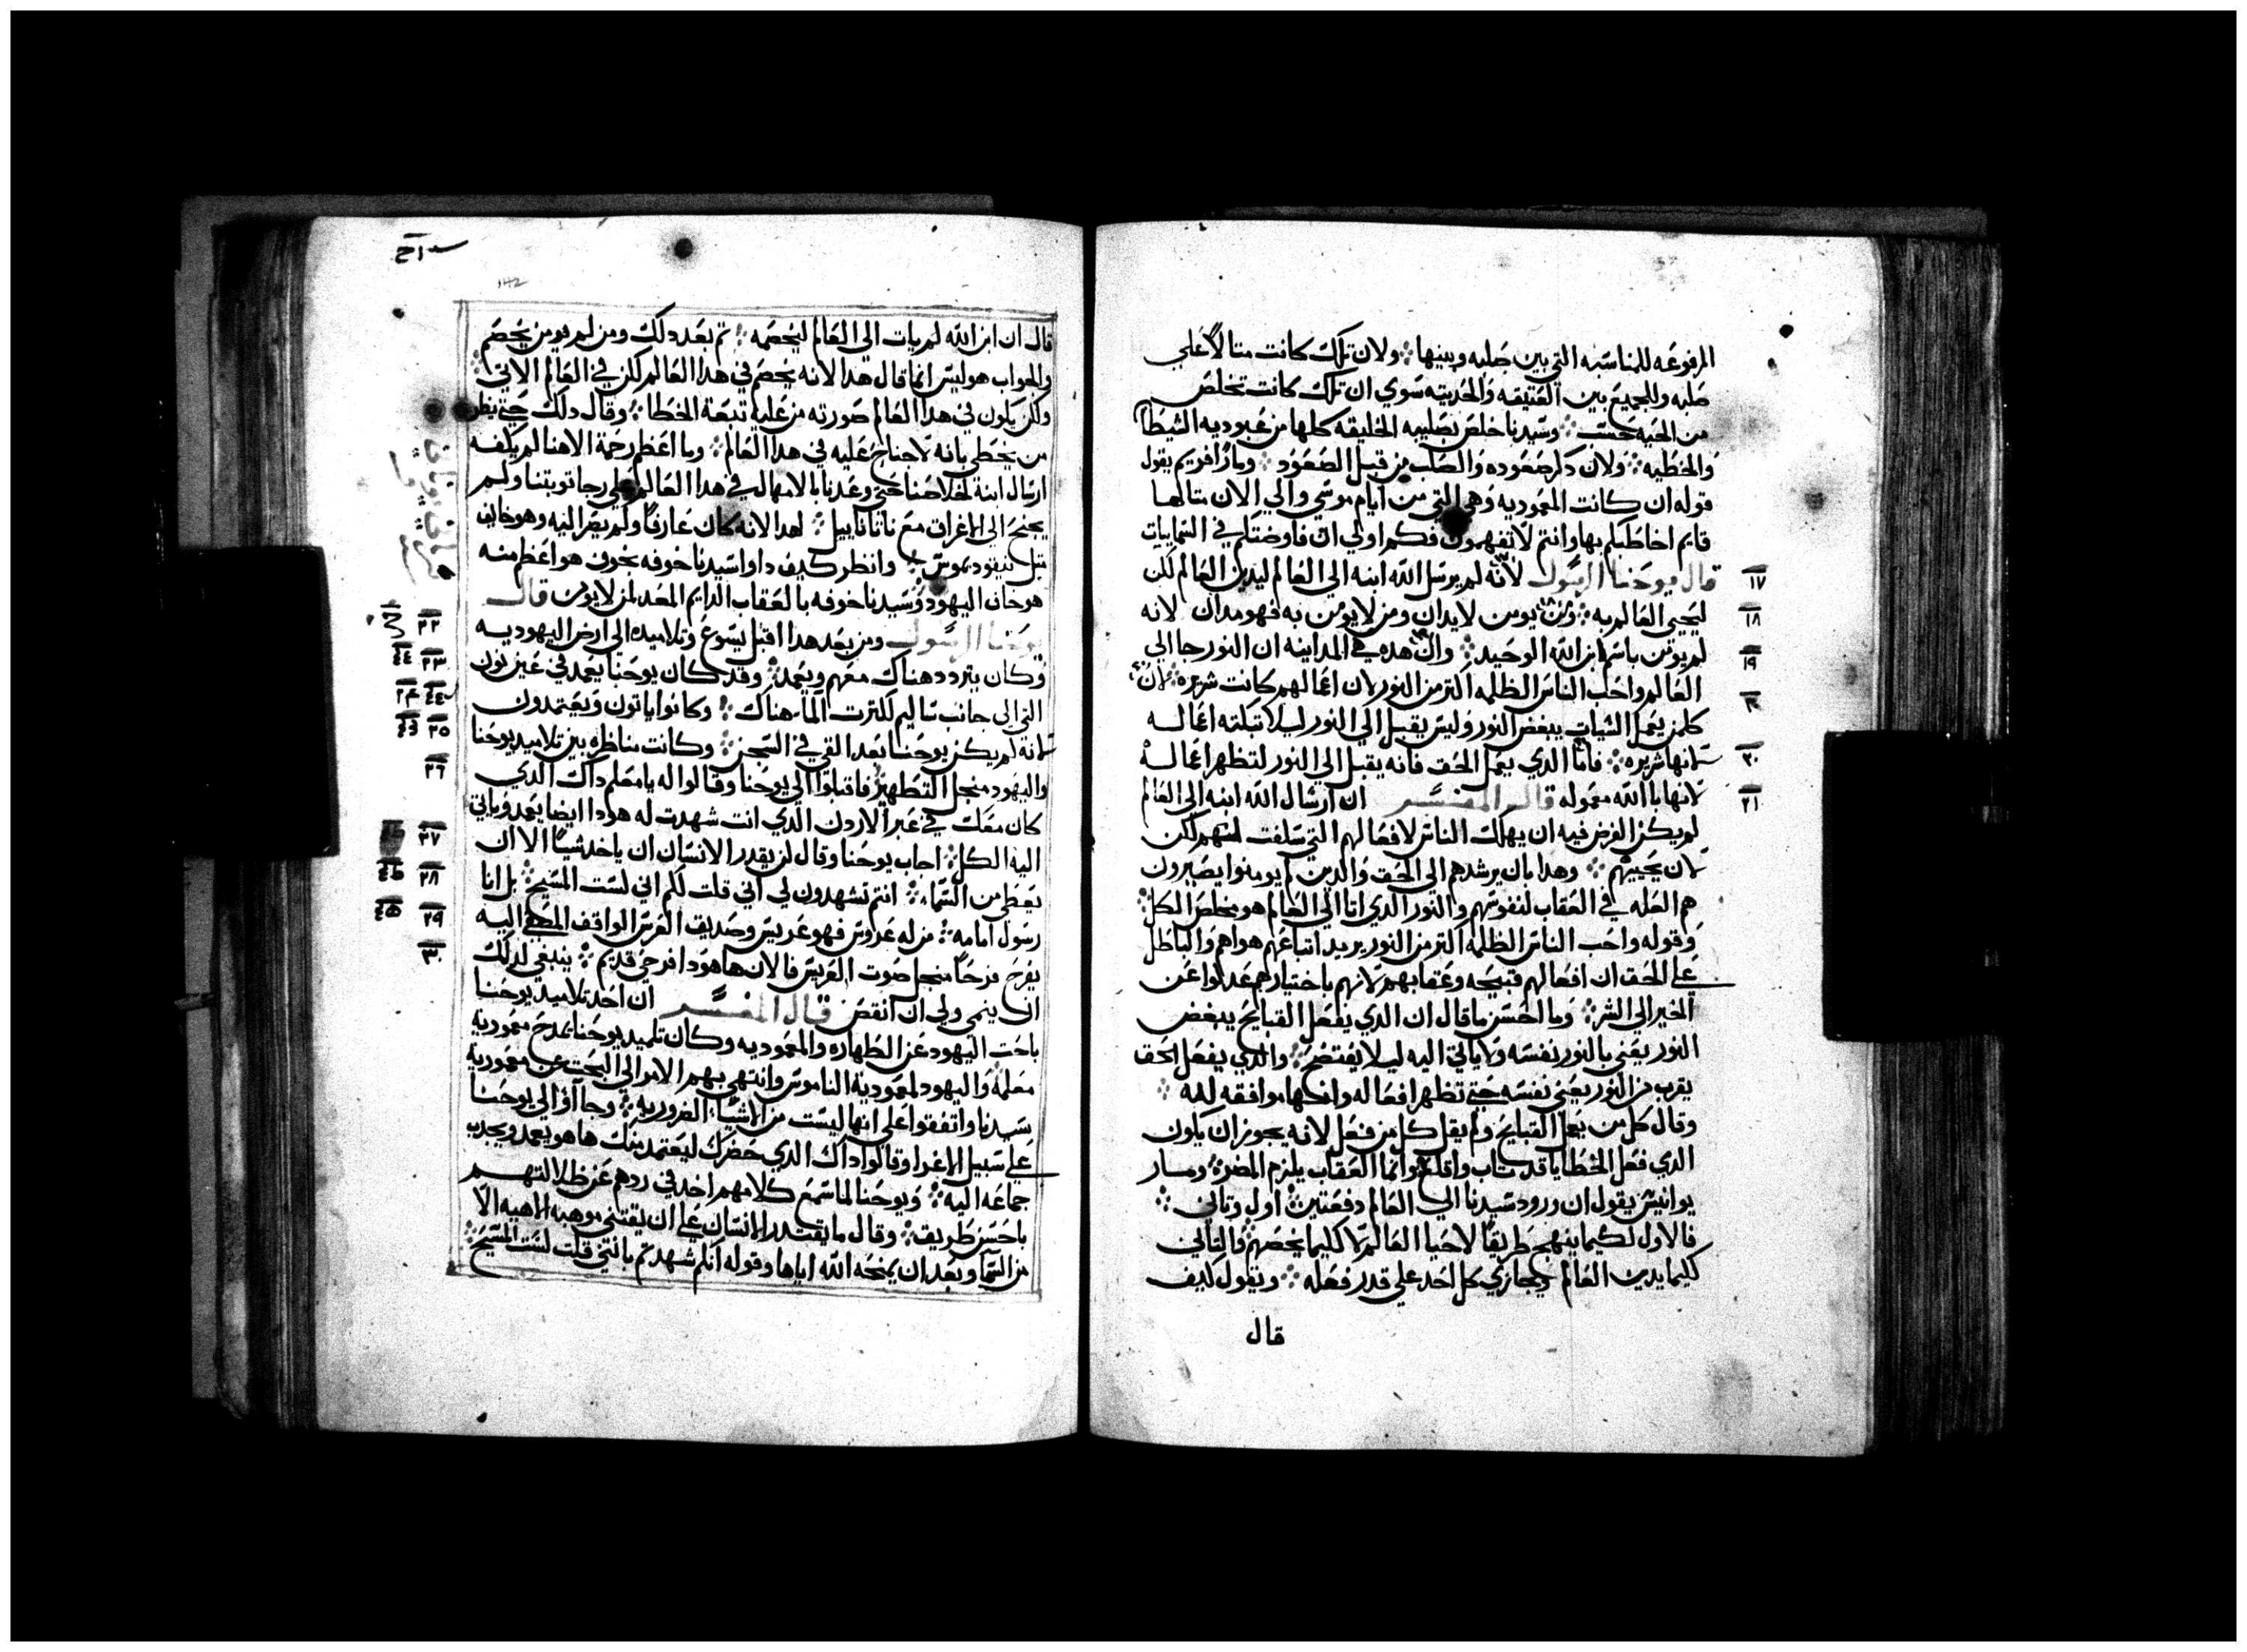 المرفوعه للمناسبه التي بين صلبه وبينها ولان تلك كانت متالاً علي
صلبه وللجميع بين العتيقه والحديثه سوي ان تلك كانت تخلص
من الحيه حسب وسيدنا خلص بصليبه الخليقه كلها من عبوديه الشيطان
والخطيه ولان ذكر صعوده والصلب من قبل الصعود ومار افريم يقول
قوله ان كانت المعموديه وهي التي من ايام موسي والي الان متالها
قايم اخاطبكم بها وانتم لا تفهمون فكم اولي ان فاوضتكم في السماييات
١٧ قال يوحنا الرسول لانه لم يرسل الله ابنه الي العالم ليدين العالم لكن
١٨ ليحيي العالم به ومن يومن لا يدان ومن لا يومن به فهو مدان لانه
١٩ لم يومن باسم ابن الله الوحيد وان هذه هي المداينه ان النور جا الي
العالم واحب الناس الظلمه اكتر من النور لان اعمالهم كانت شريره لان
كلمن يعمل السيات يبغض النور وليس يقبل الي النور ليلا تبكته اعماله
٢٠ لانها شريره فاما الذي يعمل الحق فانه يقبل الي النور لتظهر اعماله
٢١ لانها بالله معموله قال المفسر ان ارسال الله ابنه الي العالم
لم يكن الغرض فيه ان يهلك الناس لافعالهم التي سلفت منهم لكن
لان يحييهم وهدا بان يرشدهم الي الحق والدين لم يومنوا يصيرون
هم العله في العقاب لنفوسهم والنور الدي اتا الي العالم هو مخلص الكل
وقوله واحب الناس الظلمه اكتر من النور يريد اتباعهم هواهم والباطل
علي الحق ان افعالهم قبيحه وعقابهم لانهم باختيارهم عدلوا عن
الخير الي الشر وما احسن ما قال ان الدي يفعل القبايح يبغض
النور يعني بالنور نفسه ولا ياتي اليه ليلا يفتضح والدي يفعل الحق
يقرب من النور يعني نفسه حتي تظهر افعاله وانها موافقه لله
وقال كل من يعمل القبايح ولم يقل كل من فعل لانه يجوز ان يكون
الدي فعل الخطايا قد تاب واقلع وانما العقاب يلزم المصر ومار
يوانيس يقول ان ورود سيدنا الي العالم دفعتين اول وتاني
فالاول لكيما ينهج طريقاً لاحيا العالم لا كليما يخصم والتاني
كليما يدين العالم ويجازي كل احد علي قدر فعله ويقول كيف
قال
قال ان ابن الله لم يات الي العالم ليخصمه تم بعد دلك ومن لم يومن يخصم
والجواب هو ليس انما قال هدا لانه يخصم في هدا العالم لكن في العالم الاتي
ولكن يكون في هدا العالم صورته من عليه تبعة الخطا وقال دلك حتي يظن
من يخطي بانه لا جناح عليه في هدا العالم وما اعظم رحمة الاهنا لم يكفه
ارسال ابنه لخلاصنا حتي وعدنا بالامهال في هدا العالم علي رجا توبتنا ولم
يجنح الي الاغراق مع ناتانابيل لهدا لانه كان عارفاً ولم يصر اليه وهو خايف
متل نيقوديموس وانظر كيف داوا سيدنا خوفه بخوف هو اعظم منه
هو خاف اليهود وسيدنا خوفه بالعقاب الدايم المعد لمن لا يومن قال
٢٢ يوحنا الرسول ومن بعد هدا اقبل يسوع وتلاميده الي ارض اليهوديه
٢٣ وكان يتردد هناك معهم ويعمد وقد كان يوحنا يعمد في عين نون
التي الي جانب ساليم لكترت الما هناك وكانوا ياتون ويعتمدون
٢٥ لانه لم يكن يوحنا بعد القي في السجن وكانت مناظره بين تلاميد يوحنا
٢٦ واليهود منجل التطهير فاقبلوا الي يوحنا وقالوا له يا معلم داك الدي
كان معك في عبر الاردن الدي انت شهدت له هودا ايضا يعمد وياتي
٢٧ اليه الكل اجاب يوحنا وقال لن يقدر الانسان ان ياخد شياً الا ان
٢٨ يعطي من السما انتم تشهدون لي اني قلت لكم اني لست المسيح بل انا
٢٩ رسول امامه من له عروس فهو عريس وصديق العرس الواقف المصغي اليه
٣٠ يفرح فرحاً منجل صوت العريس فالان ها هودا فرحي قديم ينبغي لدلك
ان ينمي ولي ان انقص قال المفسر ان احد تلاميد يوحنا
باحت اليهود عن الطهاره والمعموديه وكان تلميد يوحنا يمدح معمودية
معلمه واليهود لمعمودية الناموس وانتهي بهم الامر الي البحت عن معمودية
سيدنا واتفقوا علي انها ليست من الاشيا الضروريه وجآاوْ الي يوحنا
علي سبيل الاغرا وقالوا داك الدي حضرك ليعتمد منك ها هو يعمد ويجدب
جماعه اليه ويوحنا لما سمع كلامهم اخد في ردهم عن ظلالتهم
باحسن طريق وقال ما يقتدر الانسان علي ان يقتني موهبه الاهيه الا
من السما وبعد ان يمنحه الله اياها وقوله انكم شهدتم بانني قلت لست المسيح